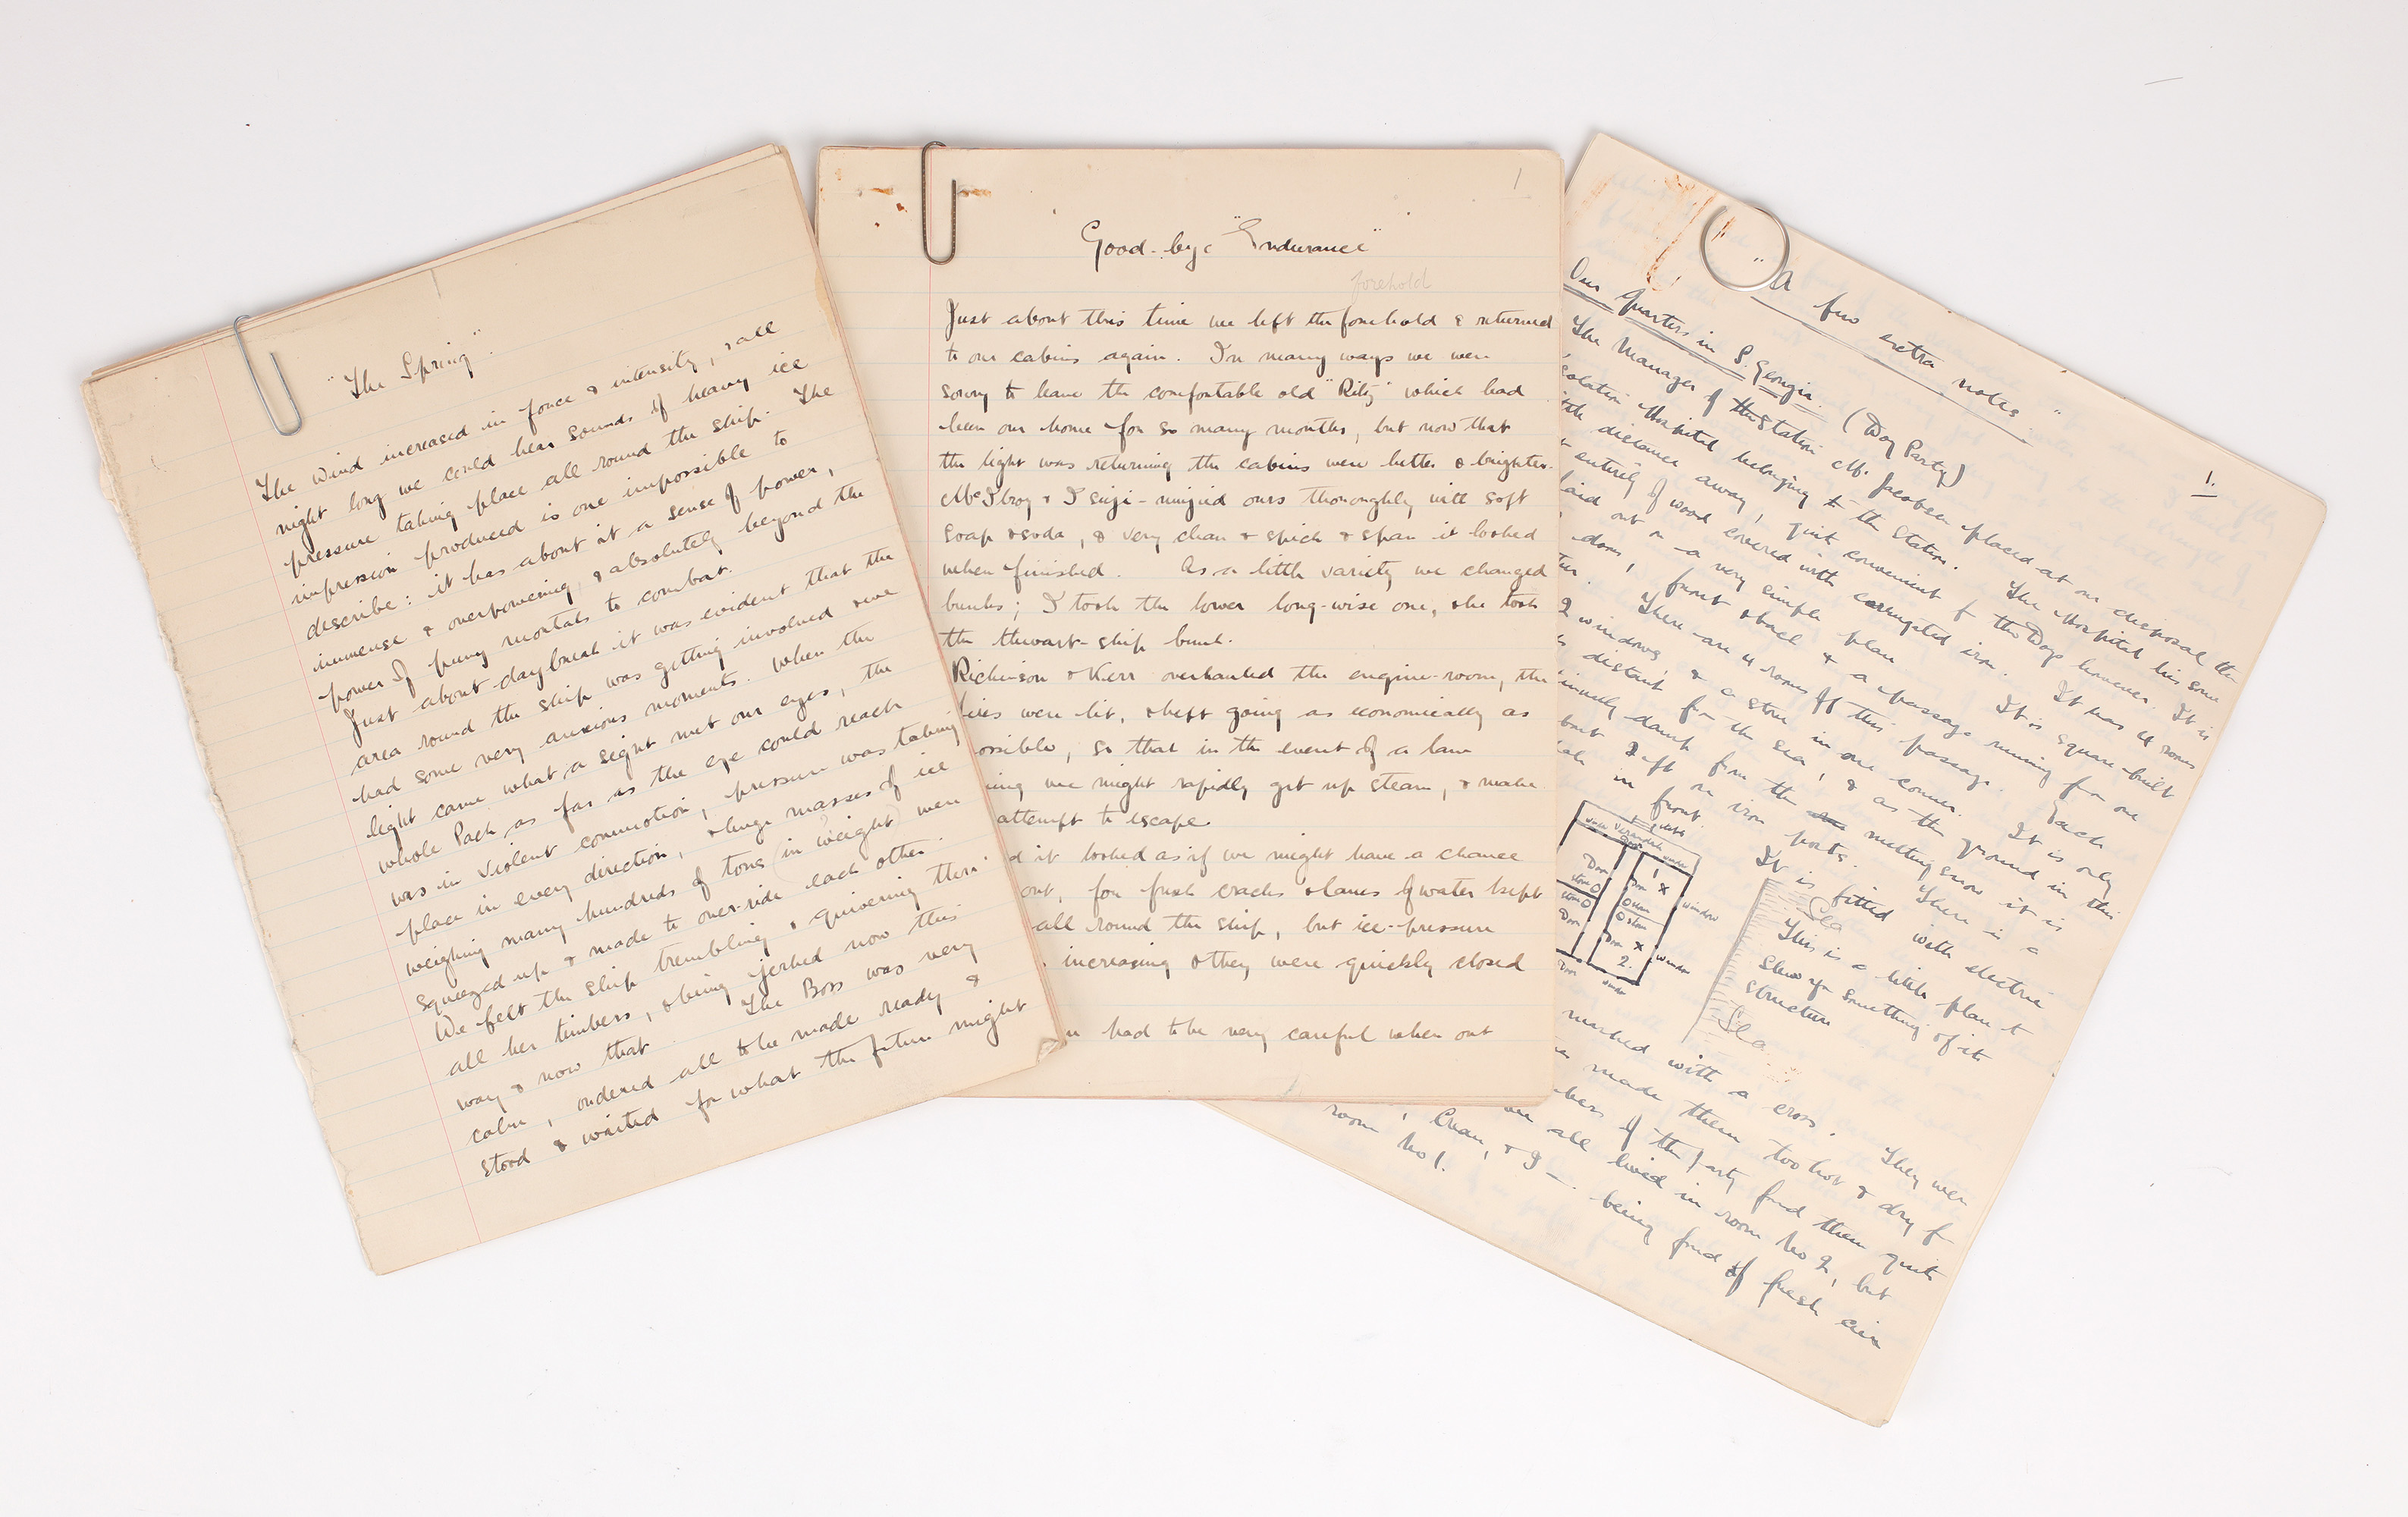 "The Spring".
The wind increased in force & intensity, & all
night long we could hear sounds of heavy ice
pressure taking place all round the ship. The
impression produced is one impossible to
describe: it has about it a sense of power,
immense & overpowering, & absolutely beyond the
power of puny mortals to combat.
Just about daybreak it was evident that the
area round the ship was getting involved & we
had some very anxious moments. When the
light came what a sight met our eyes, the
whole Pack as far as the eye could reach
was in violent commotion, pressure was taking
place in every direction, & huge masses of ice
weighing many hundreds of tons (in weight) were
squeezed up & made to over-ride each other.
We felt the ship trembling & quivering thro'
all her timbers, & being jerked now this
way & now that. The Boss was very
calm, ordered all to be made ready &
stood & waited for what the future might
1
Good-bye "Endurance"
forehold
Just about this time we left the forehold & returned
to our cabins again. In many ways we were
sorry to leave the comfortable old "Ritz" which had
been our home for so many months, but now that
the light was returning the cabins were better & brighter.
McIlroy & I suji-mujied ours thoroughly with soft
soap & soda, & very clean & spick & span it looked
when finished. As a little variety we changed
bunks; I took the lower long-wise one, & he took
the thwart-ship bunk.
Rickinson & Kerr overhauled the engine-room, the
fires were lit, & kept going as economically as
possible, so that in the event of a lane
ing we might rapidly get up steam, & make
attempt to escape.
d it looked as if we might have a chance
out, for fresh cracks & lanes of water kept
all round the ship, but ice-pressure
increasing & they were quickly closed
had to be very careful when out
"A few extra notes"
1.
Our Quarters in S. Georgia. (Dog Party)
The Manager of the Station Mr. Jacobsen placed at our disposal the
Isolation Hospital belonging to the Station. The Hospital lies some
little distance away, quite convenient for the Dogs however. It is
entirely of wood covered with corrugated iron. It is square-built
laid out on a very simple plan. It has 4 rooms
doors, front & back & a passage running from one
There are 4 rooms off this passage. Each
2 windows, & a stove in one corner. It is only
distant from the sea, & as the ground in this
damp from the melting snow it is
2 ft on iron posts. There is a
in front. It is fitted with electric
light
Verandah
window
Door
stove O
stove O
Door
Door
1 X
O stove
O stove
Door X
2.
window
window
Door
Sea
This is a little plan to
show you something of its
structure
Sea
marked with a cross. They were
made them too hot & dry for
of the party found them quite
all lived in room No 2, but
Crean, & I — being fond of fresh air
room No 1.